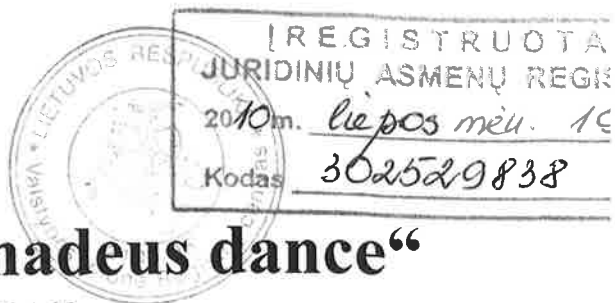 ĮREGISTRUOTA
JURIDINIŲ ASMENŲ REGIS
2010 m. liepos mėn. 19
Kodas 302529838
LIETUVOS RESPUBLIKA
nadeus dance“